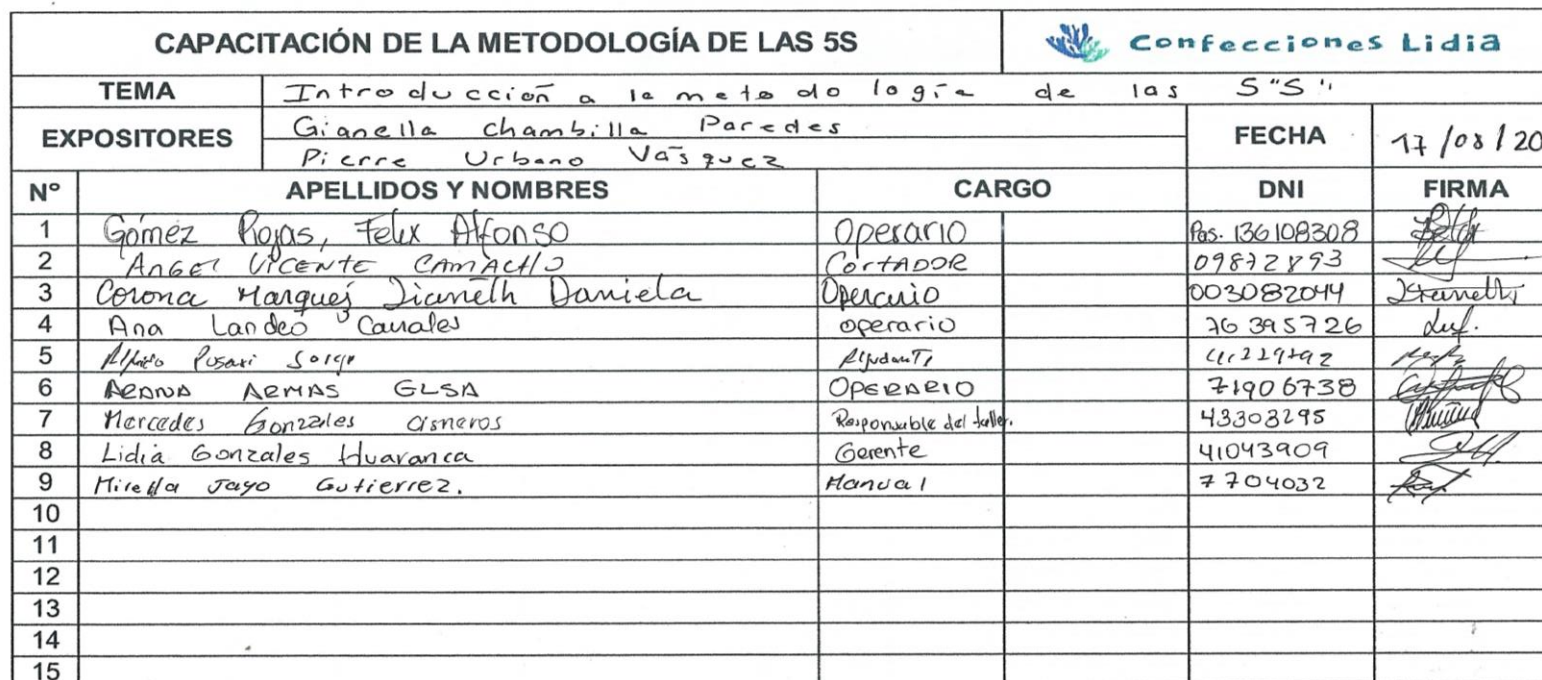 CAPACITACIÓN DE LA METODOLOGÍA DE LAS 5S Confecciones Lidia
TEMA Introducción a la metodología de las 5 "S"
EXPOSITORES Gianella Chambilla Paredes FECHA 17/08/20
Pierre Urbano Vásquez
N° APELLIDOS Y NOMBRES CARGO DNI FIRMA
1 Gómez Rojas, Felix Alfonso Operario Pas. 136108308
2 ANGEL VICENTE CAMACHO CORTADOR 09872893
3 Corona Marquej Jianeth Daniela Operario 003082044
4 Ana Landeo Canales operario 76395726
5
6 ARMAS OPERARIO 71906738
7 Mercedes Gonzales cisneros Responsable del taller. 43303295
8 Lidia Gonzales Huaranca Gerente 41043909
9 Mirella Jayo Gutierrez. Manual 7704032
10
11
12
13
14
15